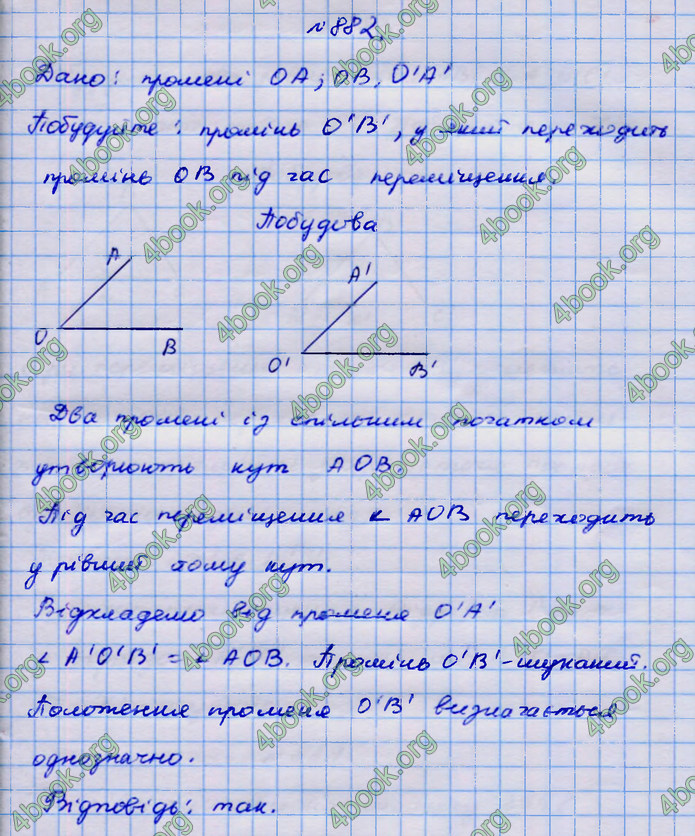 №882.
Дано: промені OA; OB, O'A'
Побудуйте: промінь O'B', у який переходить
промінь OB під час переміщення.
Побудова
A
O
B
A'
O'
B'
Два промені із спільним початком
утворюють кут AOB.
Під час переміщення ∠ AOB переходить
у рівний йому кут.
Відкладемо від променя O'A'
∠ A'O'B' = ∠ AOB. Промінь O'B' - шуканий.
Положення променя O'B' визначається
однозначно.
Відповідь: так.
4book.org